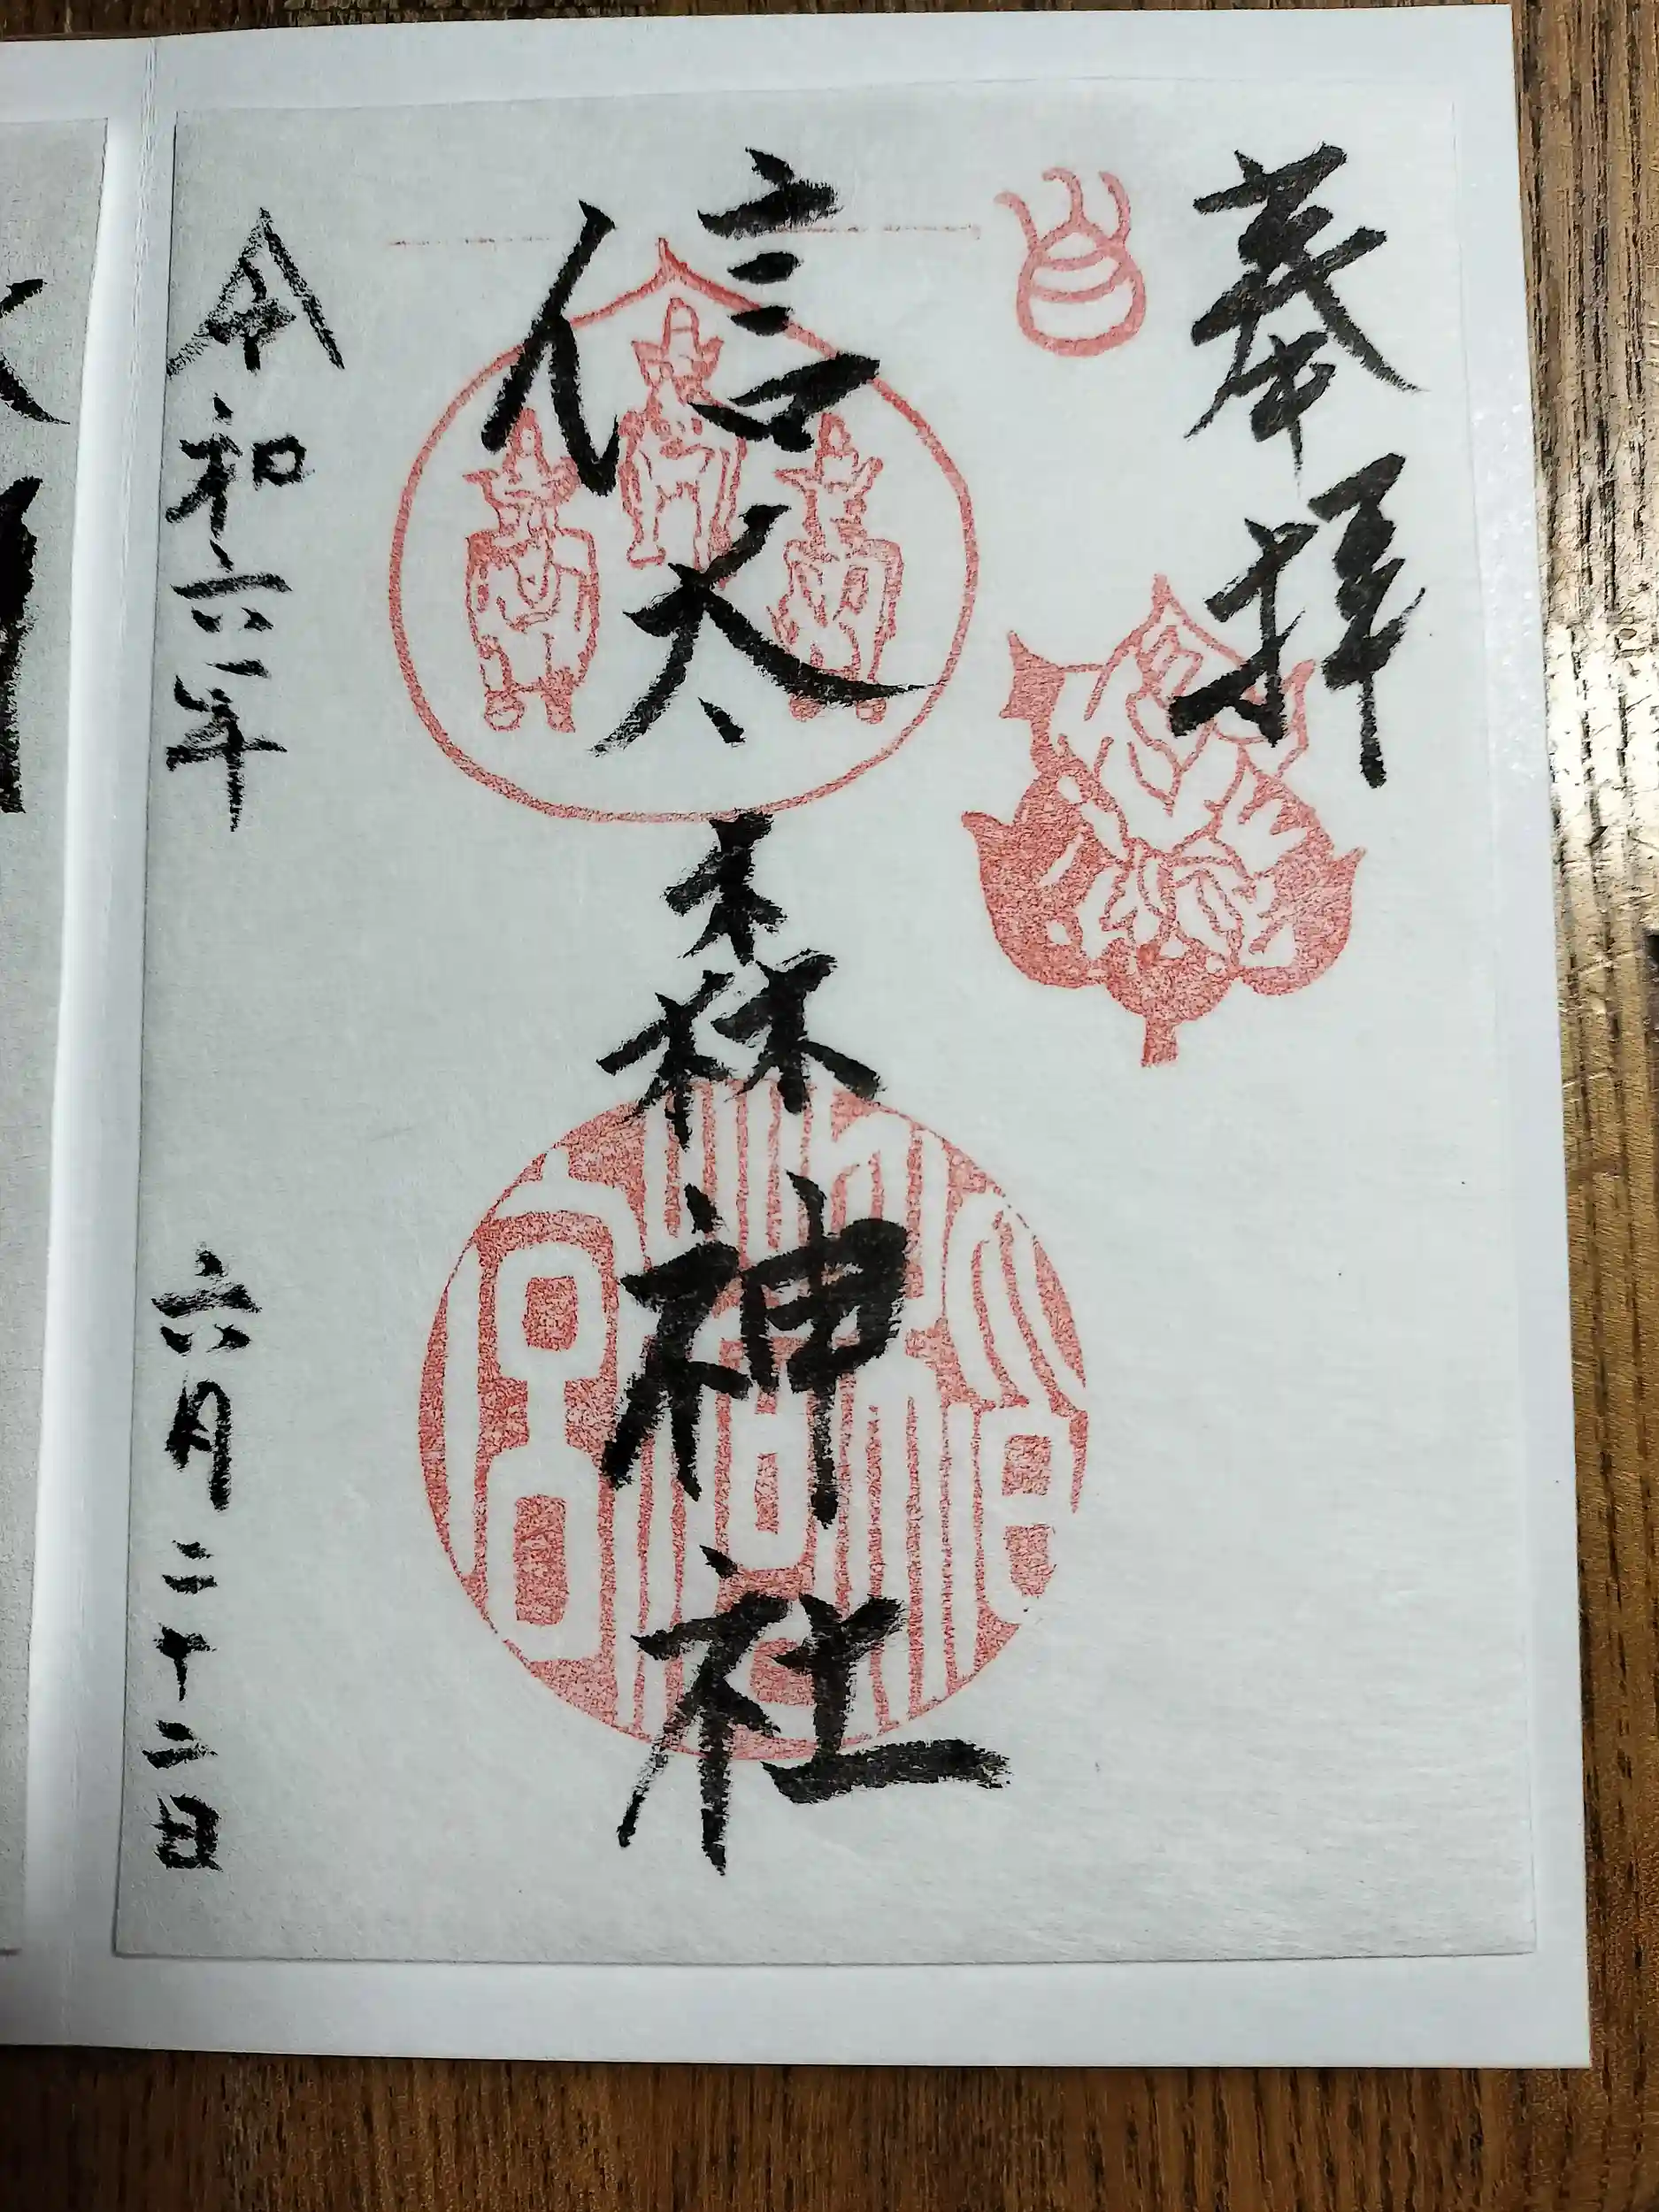 奉拝
信太森神社
令和六年 六月二十二日